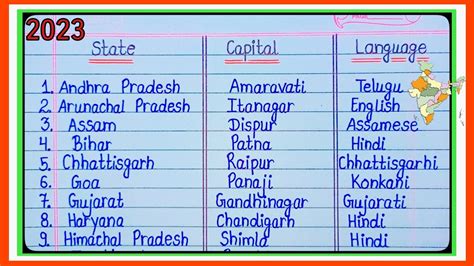 2023
State Capital Language
1. Andhra Pradesh Amaravati Telugu
2. Arunachal Pradesh Itanagar English
3. Assam Dispur Assamese
4. Bihar Patna Hindi
5. Chhattisgarh Raipur Chhattisgarhi
6. Goa Panaji Konkani
7. Gujarat Gandhinagar Gujarati
8. Haryana Chandigarh Hindi
9. Himachal Pradesh Shimla Hindi